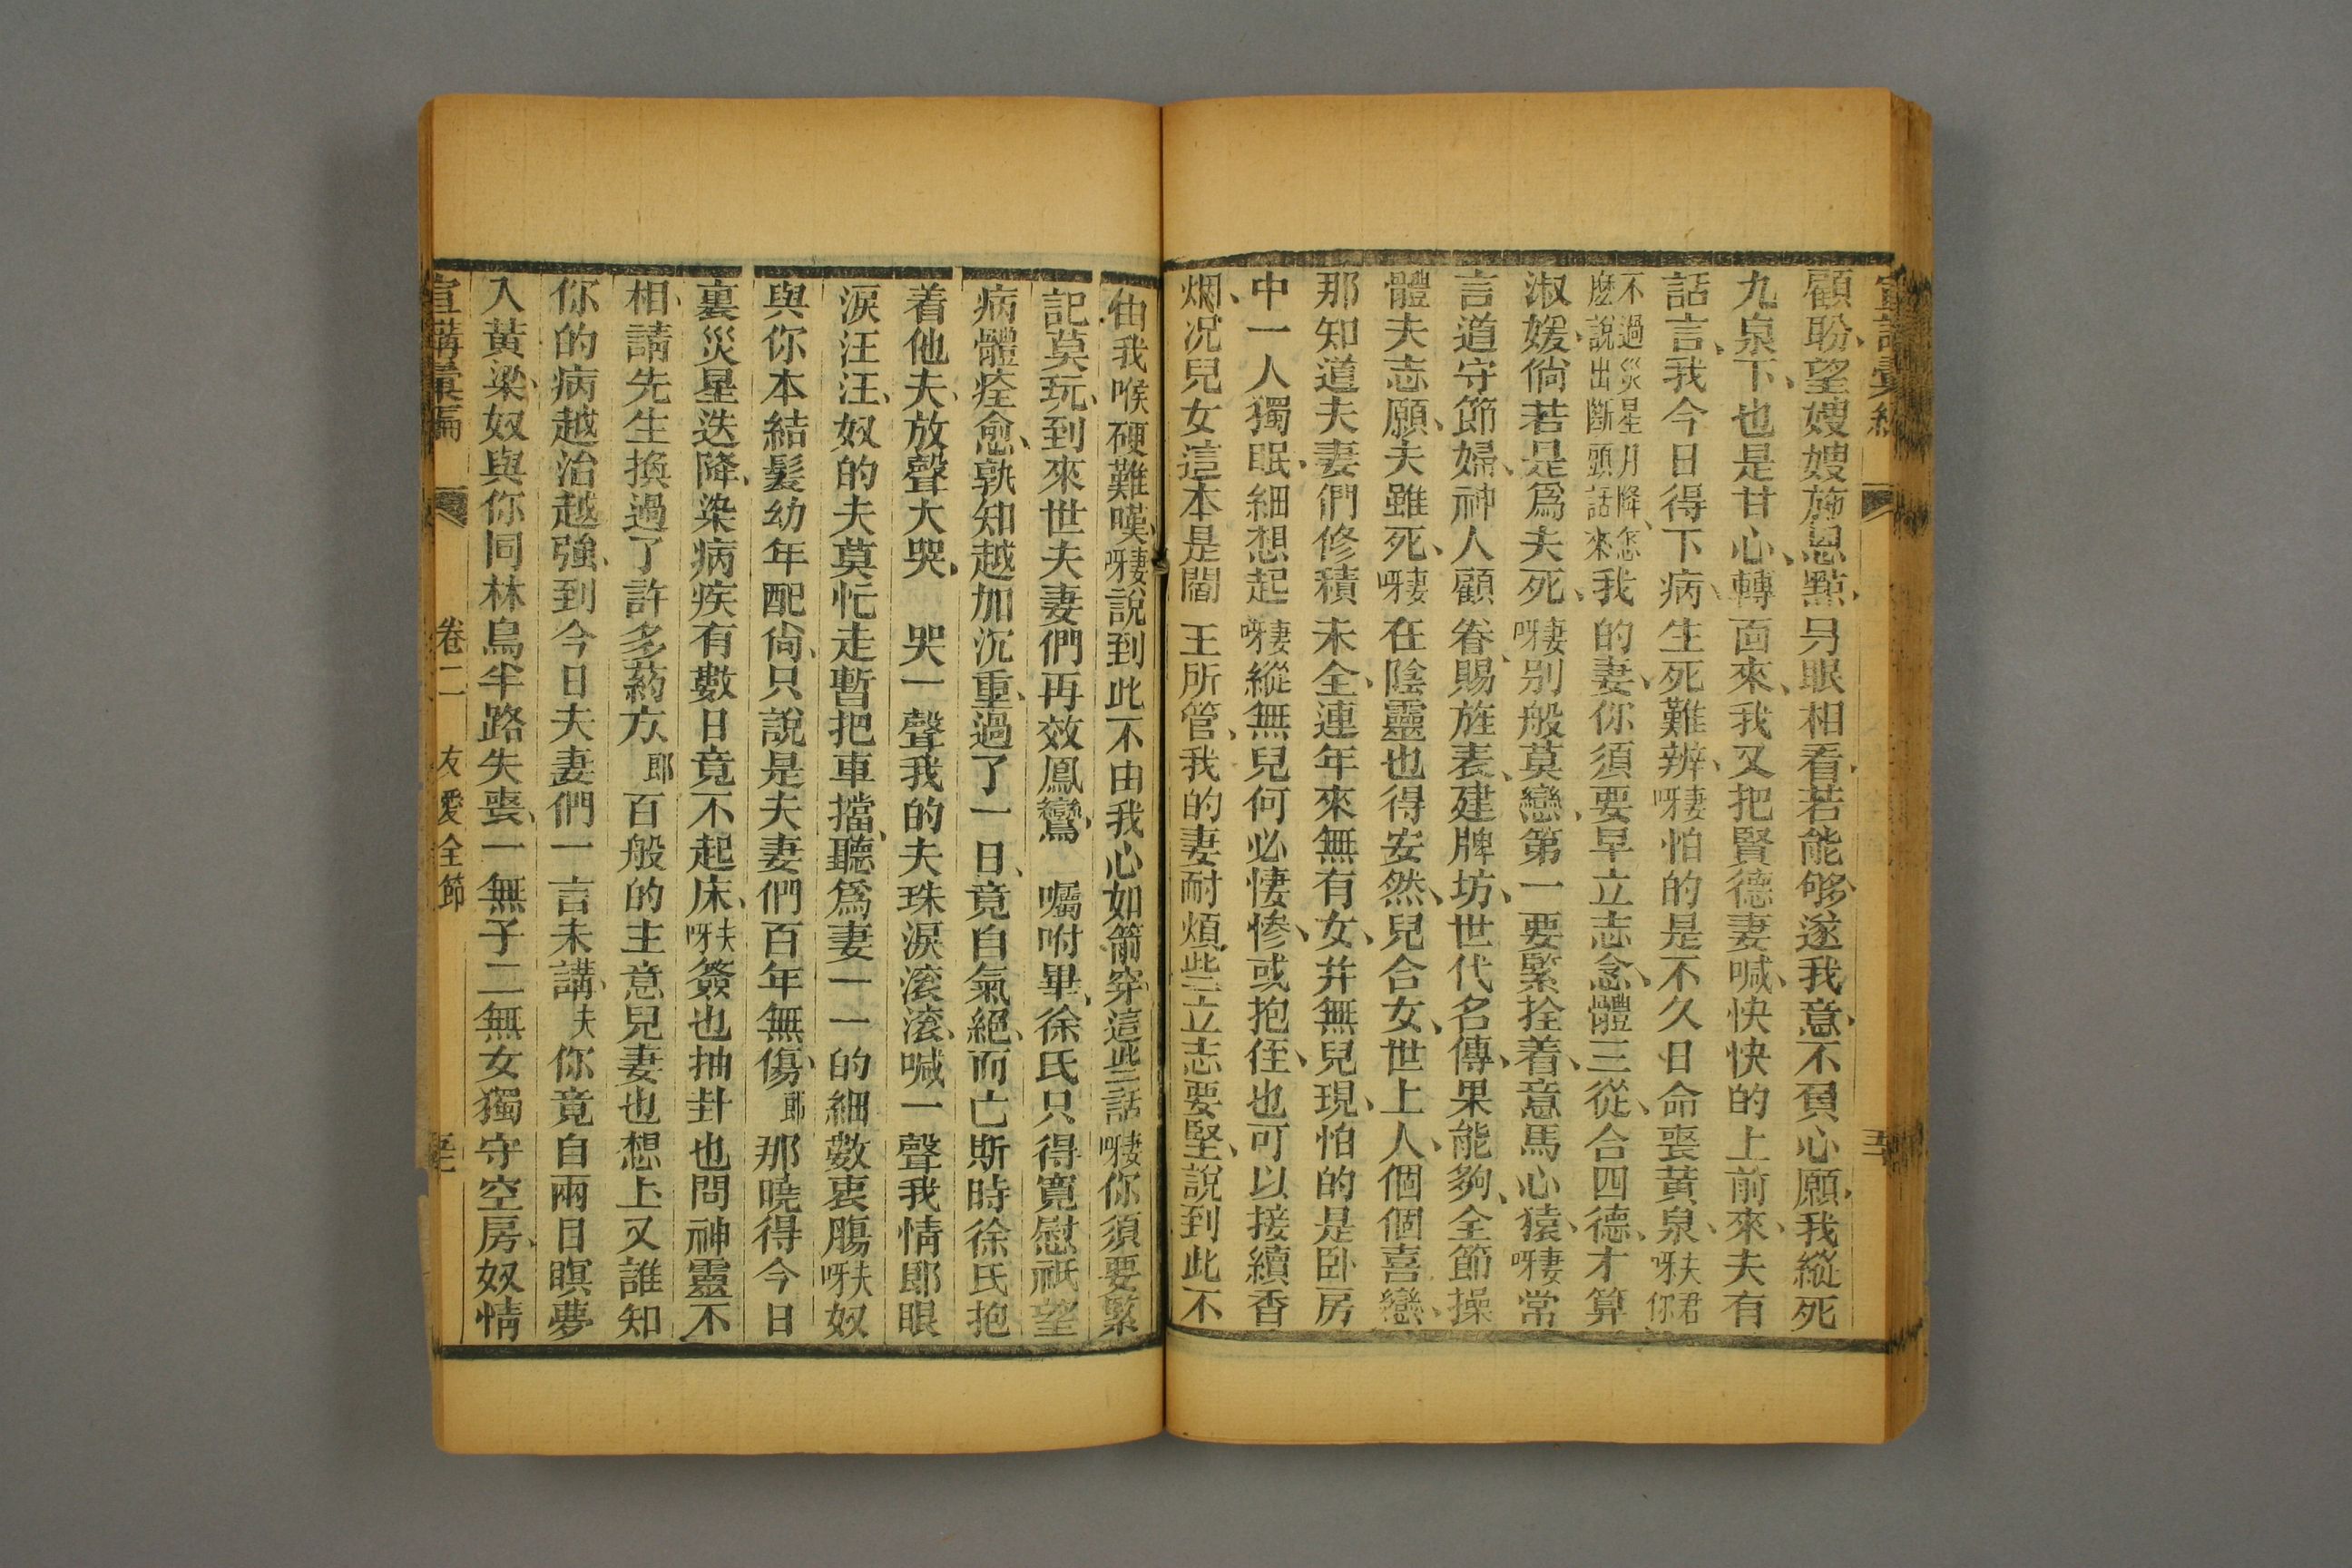 宣講彙編
顧盼、望嫂嫂施恩點、另眼相看、若能够遂我意、不負心願、我縱死
九泉下、也是甘心、轉面來、我又把賢德妻喊、快快的上前來、夫有
話言、我今日得下病、生死難辨、妻呀怕的是不久日命喪黃泉、夫君呀你
不過災星月降、怎麽說出斷頭話來我的妻、你須要早立志念、體三從、合四德、才算
淑媛、倘若是爲夫死、妻呀别般莫戀、第一要緊拴着、意馬心猿、妻呀常
言道守節婦、神人顧眷、賜旌表、建牌坊、世代名傳、果能夠、全節操
體夫志願、夫雖死、妻呀在陰靈也得安然、兒合女、世上人、個個喜戀、
那知道夫妻們修積未全、連年來無有女、并無兒現、怕的是卧房
中一人獨眠、細想起妻呀縱無兒何必悽慘、或抱侄、也可以接續香
烟、况兒女這本是閻王所管、我的妻耐煩些立志要堅、說到此不
由我喉硬難嘆、妻呀說到此不由我心如箭穿、這些話妻呀你須要緊
記莫玩、到來世夫妻們再效鳳鸞、　囑咐畢、徐氏只得寬慰、祇望
病體痊愈、孰知越加沉重、過了一日、竟自氣絕而亡、斯時徐氏抱
着他夫、放聲大哭、　哭一聲我的夫珠淚滚滚、喊一聲我情郎眼
淚汪汪、奴的夫莫忙走暫把車擋、聽爲妻一一的細數衷腸、夫呀奴
與你本結髮幼年配尙、只說是夫妻們百年無傷、郎那曉得今日
裏災星迭降、染病疾有數日竟不起床、夫呀簽也抽卦也問神靈不
相、請先生換過了許多葯方、郎百般的主意兒妻也想上、又誰知
你的病越治越強、到今日夫妻們一言未講、夫你竟自兩目瞑夢
入黃梁、奴與你同林鳥半路失喪、一無子二無女獨守空房、奴情
宣講彙編　卷二　友愛全節